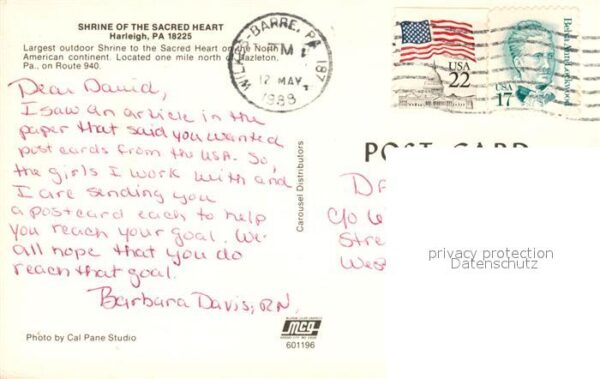 SHRINE OF THE SACRED HEART
Harleigh, PA 18225
Largest outdoor Shrine to the Sacred Heart on the North
American continent. Located one mile north of Hazleton,
Pa., on Route 940.
WILKES-BARRE, PA 187
PM
12 MAY
1988
USA
22
USA
17
Belva Ann Lockwood
Dear David,
I saw an article in the
paper that said you wanted
postcards from the USA. So,
the girls I work with and
I are sending you
a postcard each to help
you reach your goal. We
all hope that you do
reach that goal.
Barbara Davis, RN.
Carousel Distributors
POST CARD
c/o
Stre
West
privacy protection
Datenschutz
mcg
601196
Photo by Cal Pane Studio